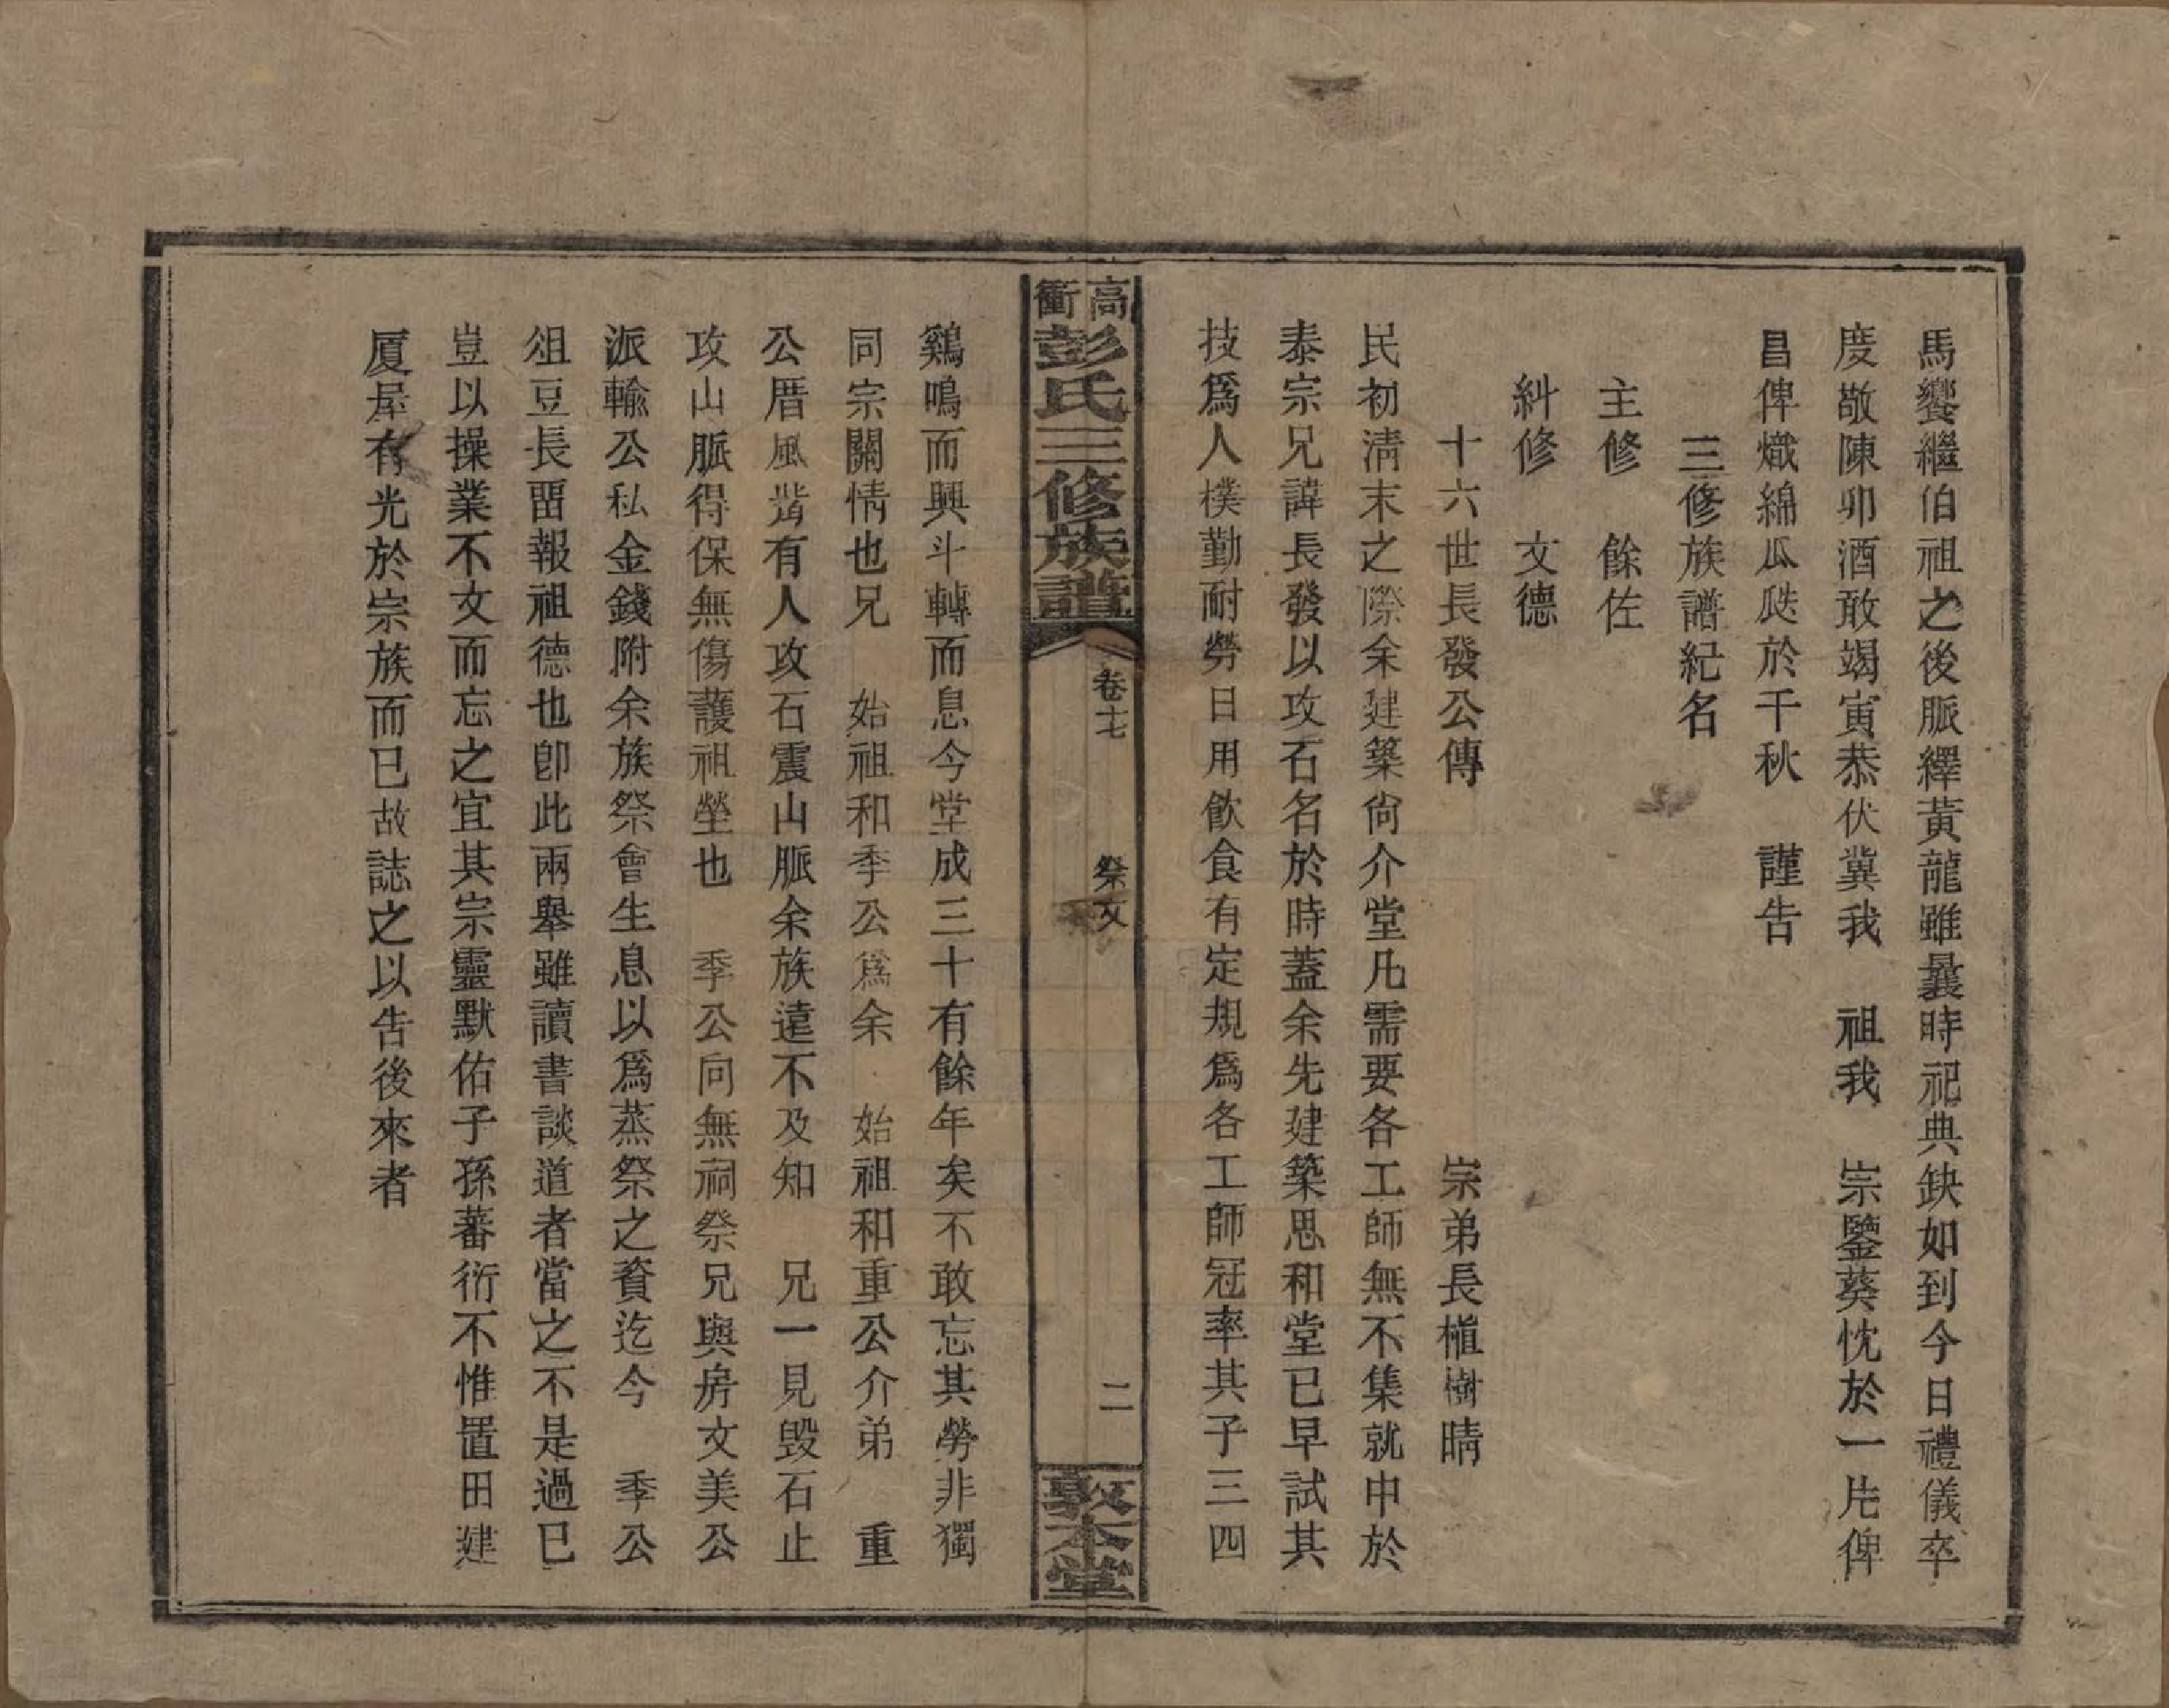 馬鬢繼伯祖之後脈繹黃龍雖曩時祀典缺如到今日禮儀卒
度敬陳卯酒敢竭寅恭伏冀我　祖我　宗鑒葵忱於一片俾
昌俾熾綿瓜瓞於千秋　謹告
三修族譜紀名
主修　餘佐
糾修　文德
十六世長發公傳　宗弟長植樹晴
民初淸末之際余建築尙介堂凡需要各工師無不集就申於
泰宗兄諱長發以攻石名於時蓋余先建築思和堂已早試其
技爲人樸勤耐勞日用飮食有定規爲各工師冠率其子三四
高衝彭氏三修族譜　卷十七　祭文　二　敦本堂
鷄鳴而興斗轉而息今堂成三十有餘年矣不敢忘其勞非獨
同宗關情也兄　始祖和季公爲余　始祖和重公介弟　重
公厝風嵳有人攻石震山脈余族遠不及知　兄一見毀石止
攻山脈得保無傷護祖塋也　季公向無祠祭兄與房文美公
派輸公私金錢附余族祭會生息以爲蒸祭之資迄今　季公
俎豆長畱報祖德也卽此兩舉雖讀書談道者當之不是過已
豈以操業不文而忘之宜其宗靈默佑子孫蕃衍不惟置田建
厦屋有光於宗族而已故誌之以告後來者